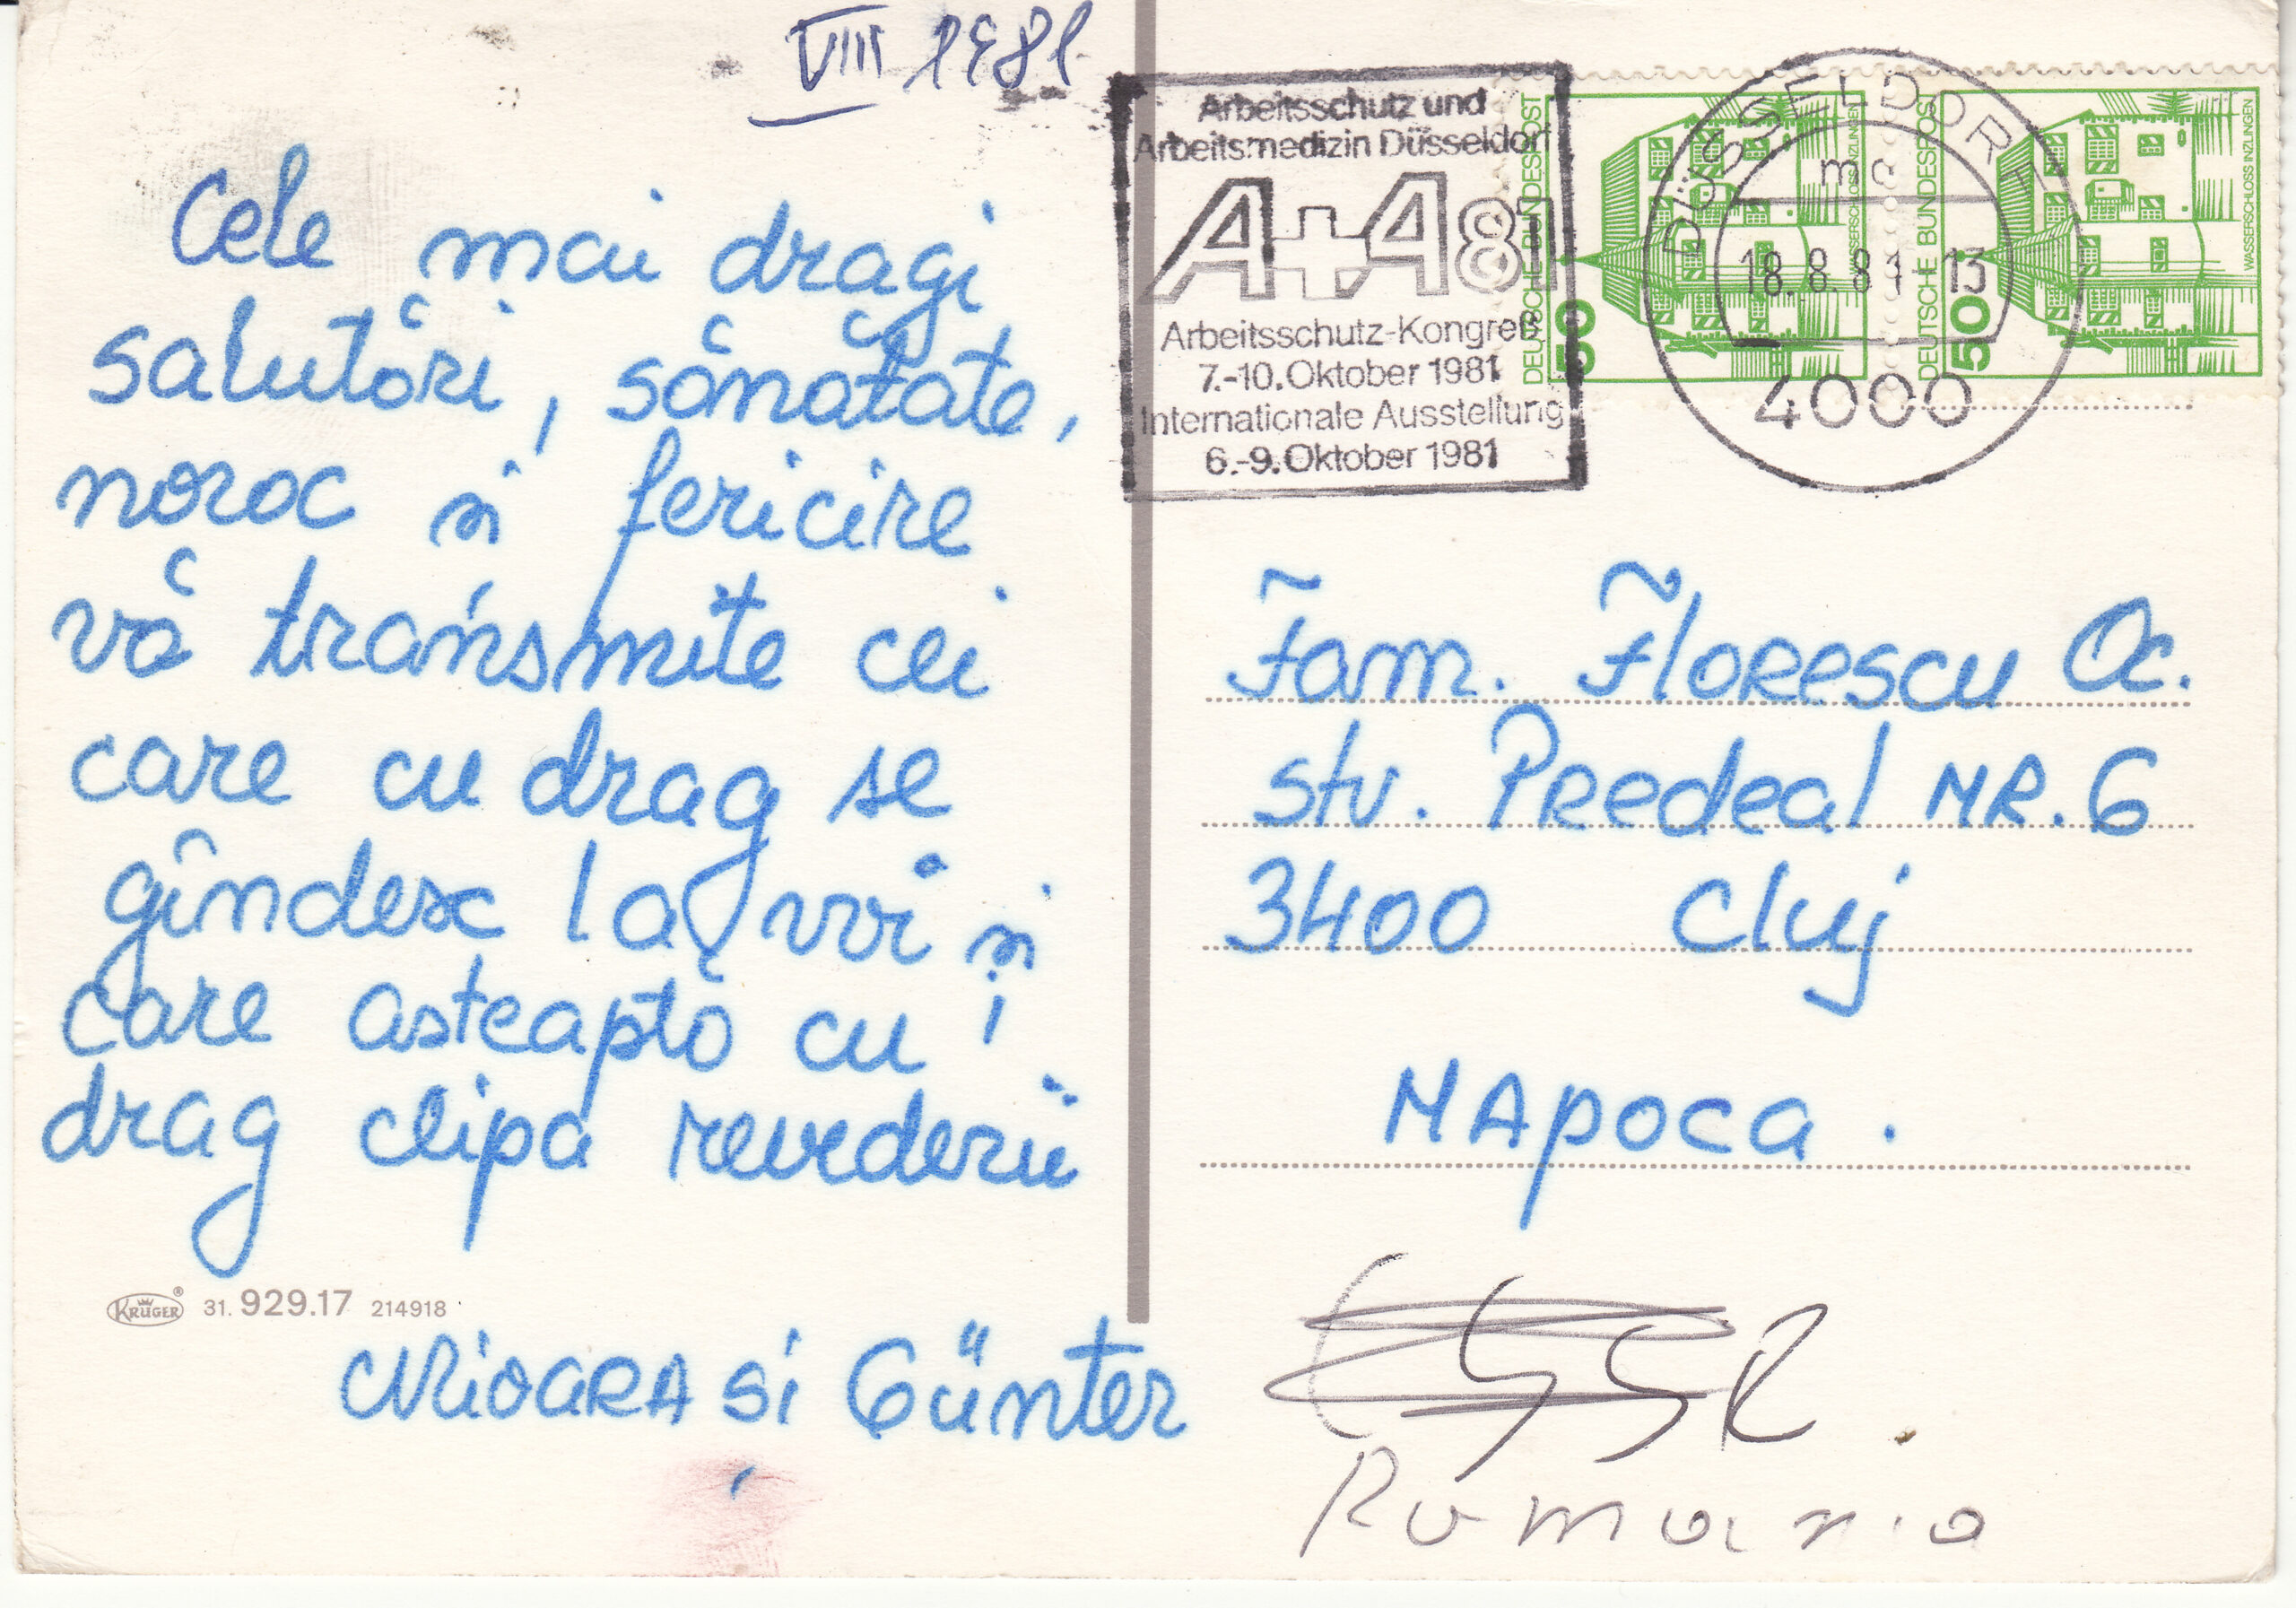 VIII 1981
Cele mai dragi
salutări, sănătate,
noroc și fericire
vă transmite cei
care cu drag se
gîndesc la voi și
care așteaptă cu
drag clipa revederii
KRÜGER® 31. 929.17 214918
Mioara și Günter
Arbeitsschutz und
Arbeitsmedizin Düsseldorf
A+A 81
Arbeitsschutz-Kongreß
7.-10. Oktober 1981
Internationale Ausstellung
6.-9. Oktober 1981
DEUTSCHE BUNDESPOST
50
WASSERSCHLOSS INZLINGEN
DÜSSELDORF
18.8.81-13
4000
DEUTSCHE BUNDESPOST
50
WASSERSCHLOSS INZLINGEN
Fam. Florescu Oc.
str. Predeal NR. 6
3400 Cluj
NApoca.
Romania